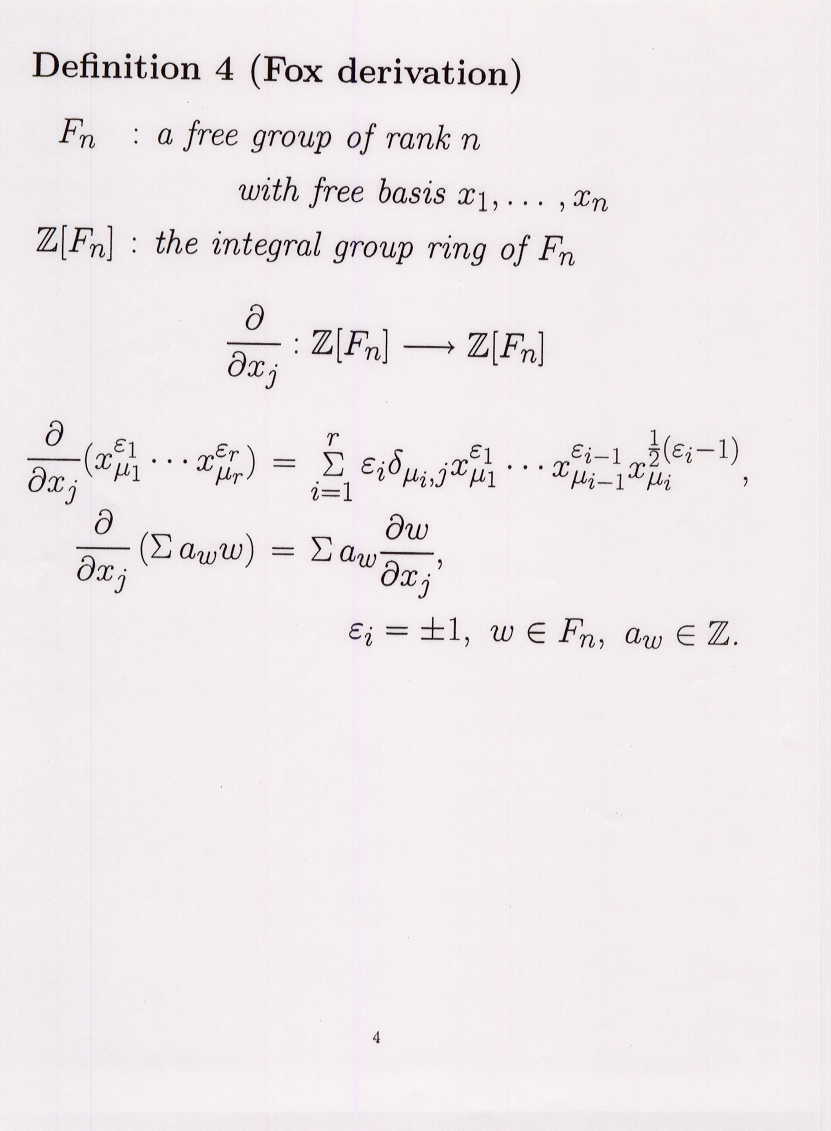 Definition 4 (Fox derivation)
Fₙ : a free group of rank n
with free basis x₁, … , xₙ
ℤ[Fₙ] : the integral group ring of Fₙ
\frac{∂}{∂x_j} : ℤ[Fₙ] ⟶ ℤ[Fₙ]
\frac{∂}{∂x_j}(x_{μ_1}^{ε_1} ⋯ x_{μ_r}^{ε_r}) = \sum_{i=1}^{r} ε_i δ_{μ_i,j} x_{μ_1}^{ε_1} ⋯ x_{μ_{i-1}}^{ε_{i-1}} x_{μ_i}^{\frac{1}{2}(ε_i-1)},
\frac{∂}{∂x_j}(Σ a_w w) = Σ a_w \frac{∂w}{∂x_j},
ε_i = ±1, w ∈ Fₙ, a_w ∈ ℤ.
4